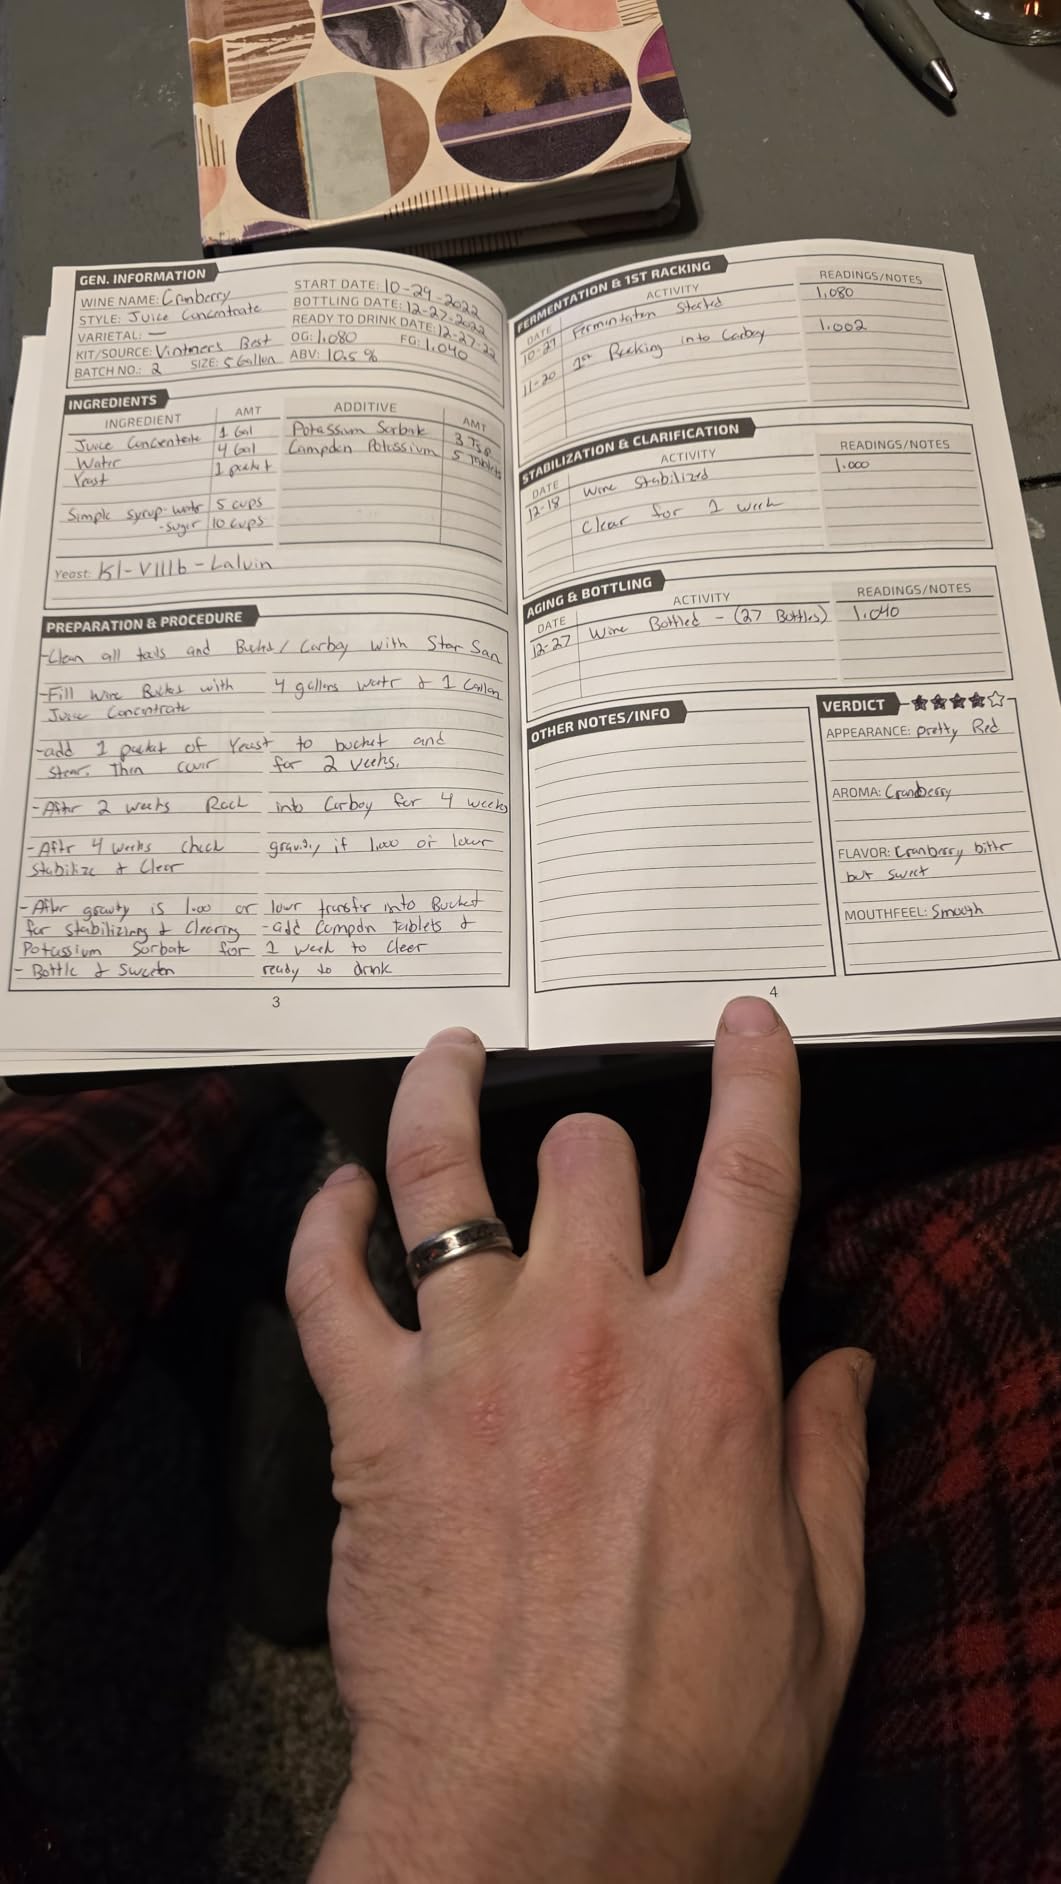 GEN. INFORMATION
WINE NAME: Cranberry
STYLE: Juice Concentrate
VARIETAL: —
KIT/SOURCE: Vintners Best
BATCH NO.: 2 SIZE: 5 Gallon
START DATE: 10-29-2022
BOTTLING DATE: 12-27-2022
READY TO DRINK DATE: 12-27-22
OG: 1.080 FG: 1.040
ABV: 10.5 %
INGREDIENTS
INGREDIENT AMT
Juice Concentrate 1 Gal
Water 4 Gal
Yeast 1 packet
Simple Syrup - water 5 cups
- sugar 10 cups
ADDITIVE AMT
Potassium Sorbate 3 Tsp
Campden Potassium 5 Tablets
Yeast: K1-V1116 - Lalvin
PREPARATION & PROCEDURE
-Clean all tools and Bucket / Carboy with Star San
-Fill Wine Bucket with 4 gallons water & 1 Gallon
Juice Concentrate
-add 1 packet of Yeast to bucket and
stear. Then cover for 2 weeks.
-After 2 weeks Rack into Carboy for 4 weeks
-After 4 weeks check gravity if 1.000 or lower
stabilize & Clear
-After gravity is 1.00 or lower transfer into Bucket
for stabilizing & Clearing -add Campdn tablets &
Potassium Sorbate for 1 week to Cleer
- Bottle & Sweeten ready to drink
3
FERMENTATION & 1ST RACKING
DATE ACTIVITY READINGS/NOTES
10-29 Fermentation Started 1.080
11-20 1st Racking into Carboy 1.002
STABILIZATION & CLARIFICATION
DATE ACTIVITY READINGS/NOTES
12-18 Wine Stabilized 1.000
Clear for 1 week
AGING & BOTTLING
DATE ACTIVITY READINGS/NOTES
12-27 Wine Bottled - (27 Bottles) 1.040
OTHER NOTES/INFO
VERDICT
APPEARANCE: pretty Red
AROMA: Cranberry
FLAVOR: Cranberry bitter
but sweet
MOUTHFEEL: Smooth
4